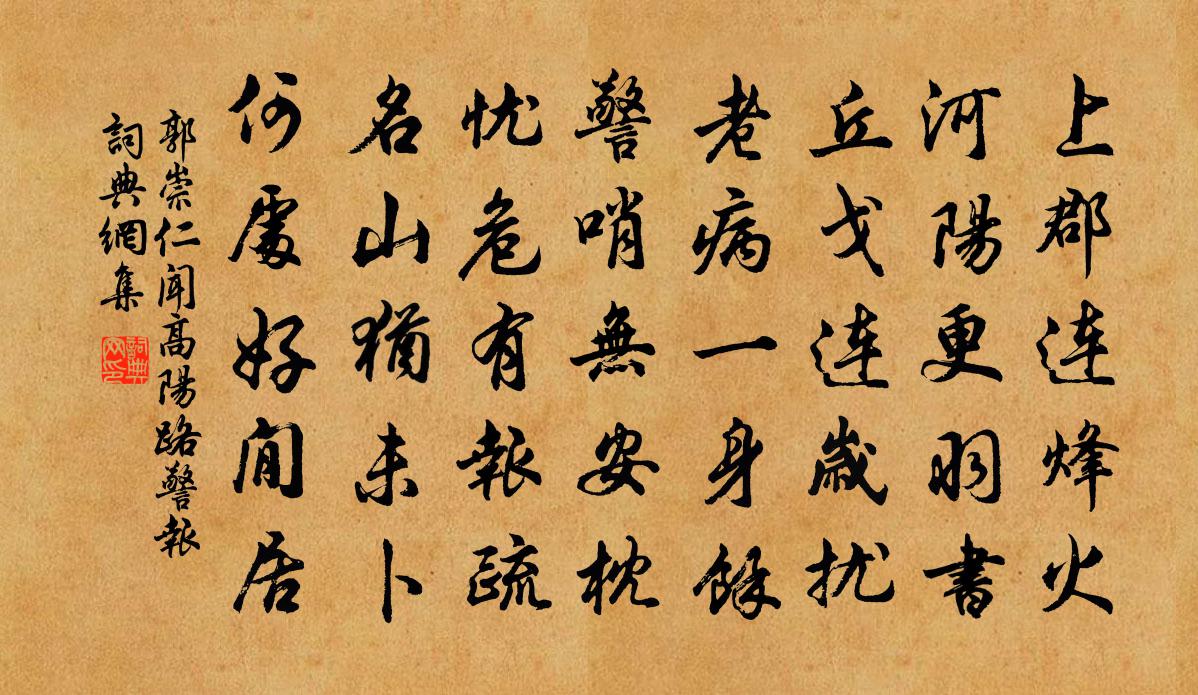 上郡連烽火
河陽更羽書
丘戈連歲扰
老病一身餘
警哨無安枕
忧危有報疏
名山猶未卜
何處好閒居
郭崇仁聞高陽路警報
詞典網集
詞典网印